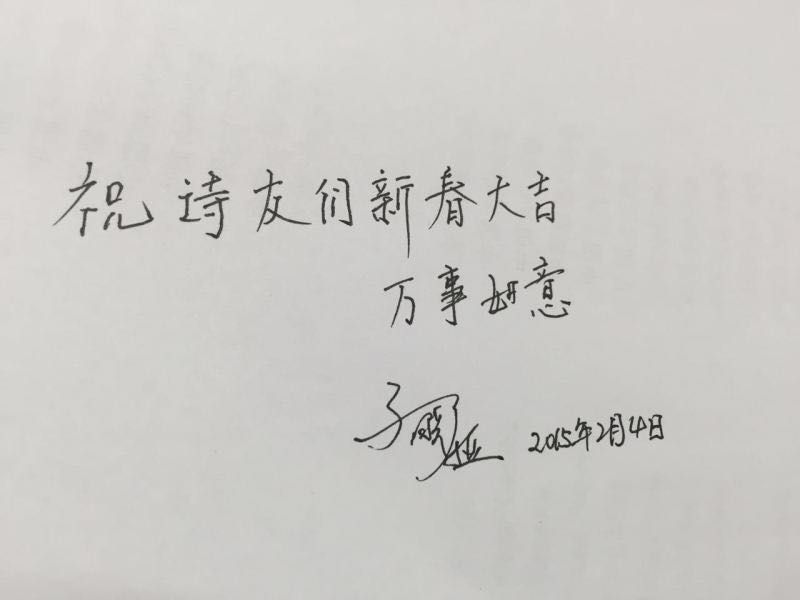 祝诗友们新春大吉
万事如意
2015年2月4日